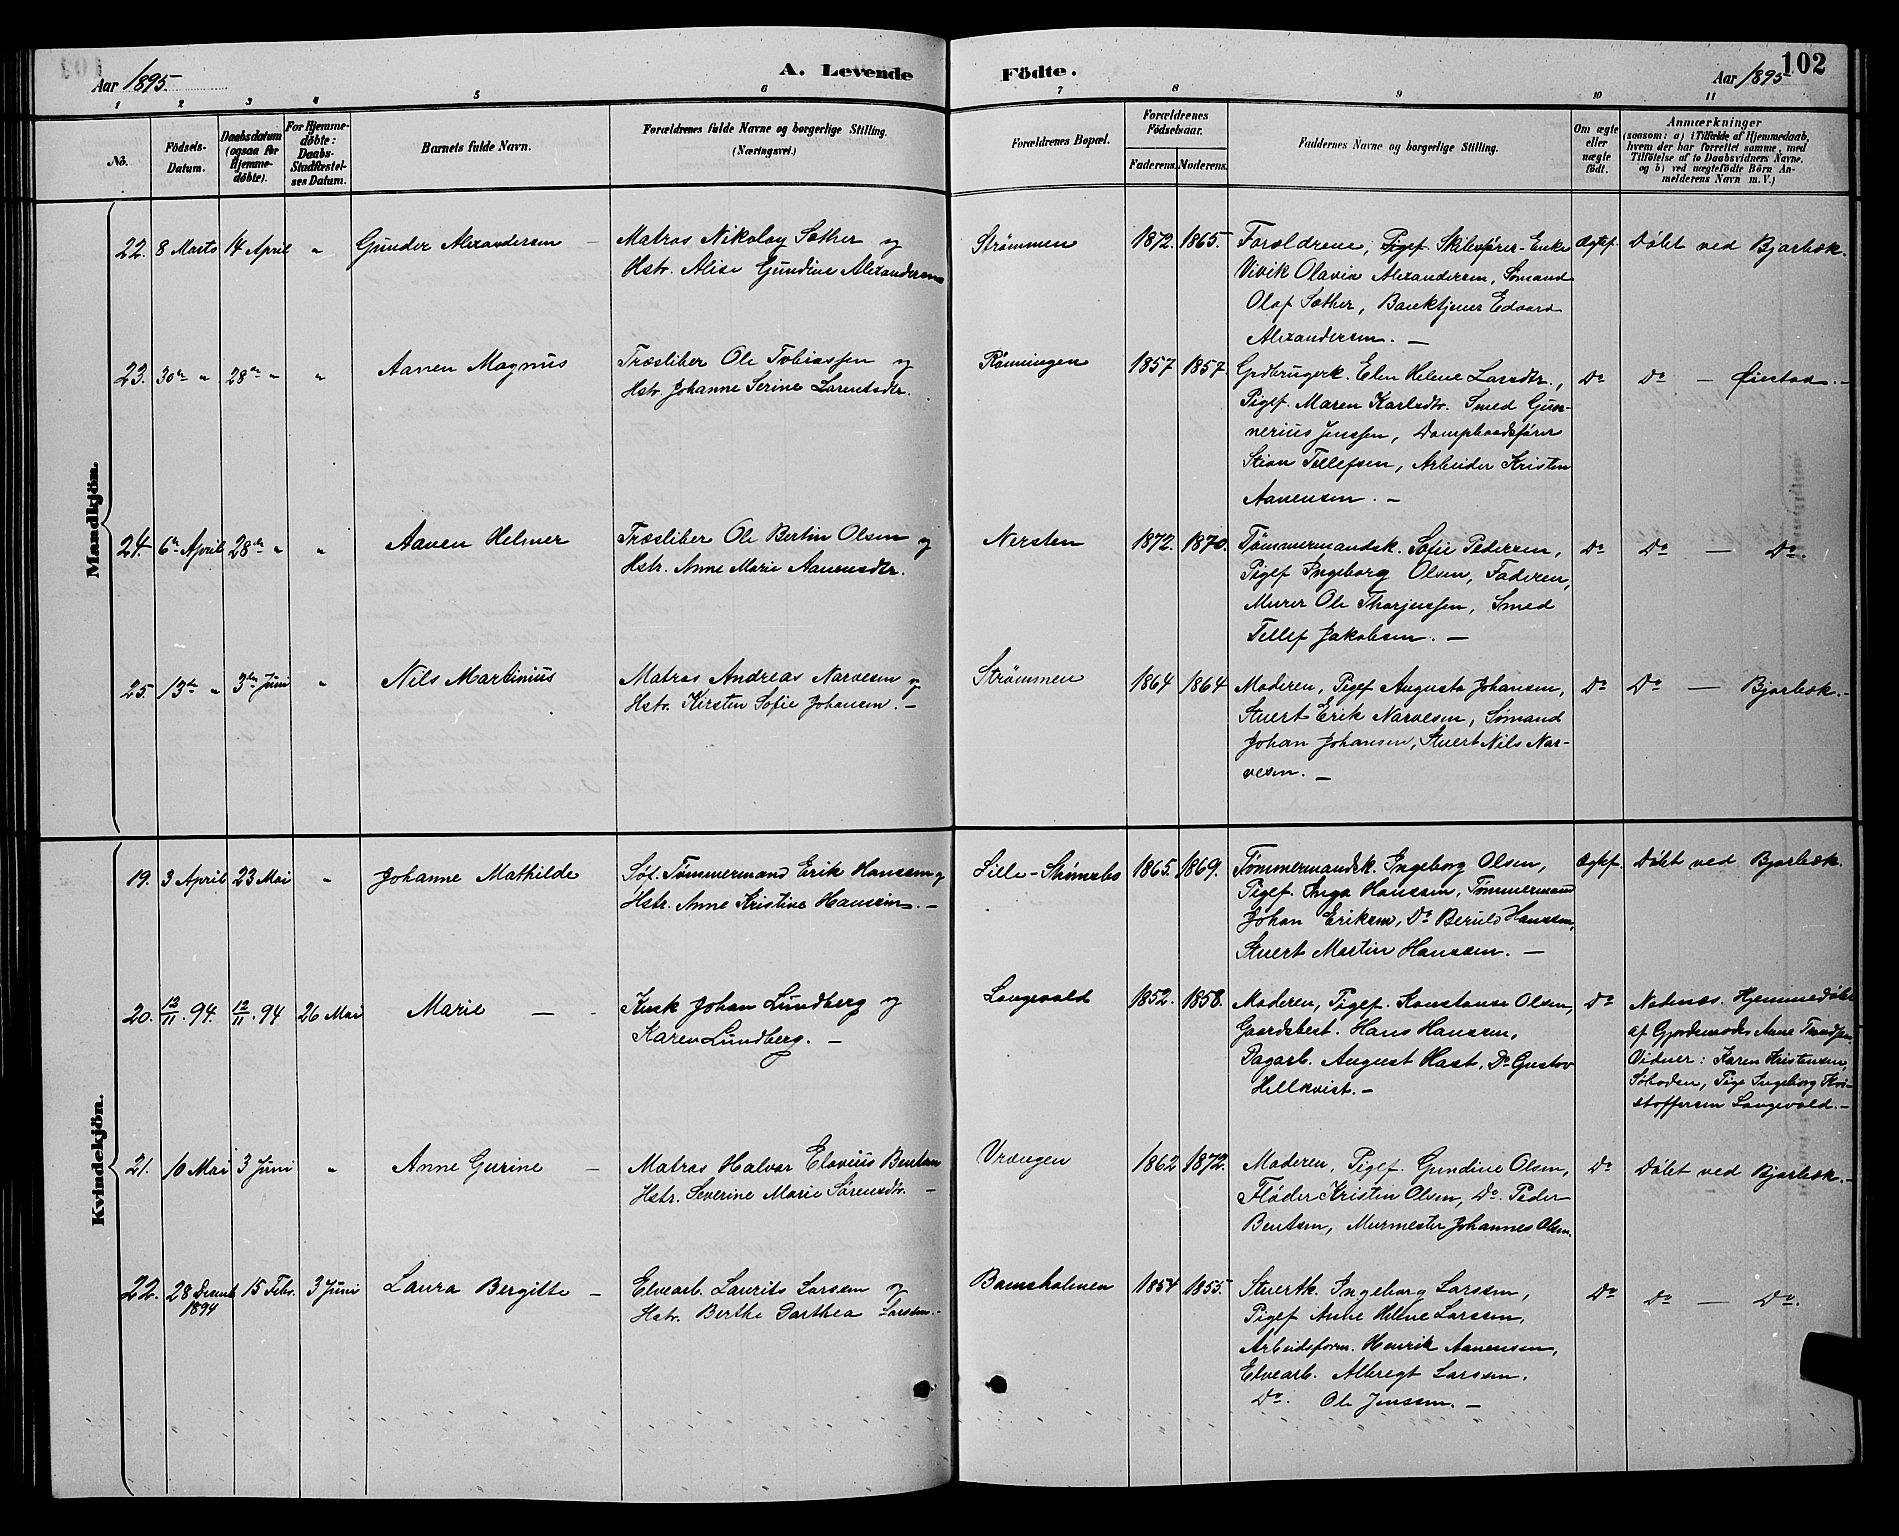 Aar 1895.
A. Levende
Födte.
Aar 1895
102
1 2 3 4 5 6 7 8 9 10 11
No.
Födsels-
Datum.
Daabsdatum
(ogsaa for
Hjemme-
döbte).
For Hjemme-
döbte:
Daabs-
Stadfæstel-
ses Datum.
Barnets fulde Navn.
Forældrenes fulde Navne og borgerlige Stilling.
(Næringsvei.)
Forældrenes Bopæl.
Forældrenes
Födselsaar.
Faderens. Moderens.
Faddernes Navne og borgerlige Stilling.
Om ægte
eller
uægte
födt.
Anmærkninger
(saasom: a) i Tilfælde af Hjemmedaab,
hvem der har forrettet samme, med
Tilföielse af to Daabsvidners Navne.
og b) ved uægtefödte Börn An-
melderens Navn m. V.)
Mandkjön.
22. 8 Marts 14 April " Gunder Alexandersen – Matros Nikolay Sæther og
Hstr. Alise Gundine Alexandersen
Strømmen 1872. 1865. Forældrene, Pigef Skibsfører-Enke
Vivik Olavia Alexandersen, Sømand
Olaf Sæther, Banktjener Edvard
Alexandersen. –
Ægtef. Døbt ved Bjorbæk.
23. 30te " 28de " " Aanen Magnus Træsliber Ole Tobiassen og
Hstr. Johanne Serine Larentsdtr.
Rønningen 1857 1857. Grdbrugerk. Elen Helene Larsdtr.,
Pigef. Maren Karlsdtr. Smed Gun-
nerius Jenssen, Dampbaadsfører
Stian Tellefsen, Arbeider Kristen
Aanensen. –
Do Do – Øiestad. –
24. 6te April 28de " " Aanen Helmer Træsliber Ole Bertin Olsen og
Hstr. Anne Marie Aanensdtr.
Nersten 1872. 1870. Tømmermandsk. Sofie Pedersen,
Pigef Ingeborg Olsen, Faderen,
Murer Ole Thorjussen, Smed
Tellef Jakobsen. –
Do Do – Do.
25. 13de " 3die Juni " Nils Martinius Matros Andreas Narvesen og
Hstr. Kirsten Sofie Johansen. –
Strømmen 1864 1864 Moderen, Pigef Augusta Johansen,
Stuert Erik Narvesen, Sømand
Johan Johansen, Stuert Nils Nar-
vesen. –
Do Do – Bjorbæk. –
Kvindekjön.
19. 3 April 23 Mai " Johanne Mathilde Søt. Tømmermand Erik Hanssen og
Hstr. Anne Kristine Hanssen. –
Lille-Strømsbo 1865. 1869. Tømmermandsk. Ingeborg Olsen,
Pigef. Inga Hanssen, Tømmermand
Johan Eriksen, Do Berulf Hanssen,
Stuert Martin Hanssen. –
Ægtef. Døbt ved Bjorbæk.
20. 12/11. 94. 12/11. 94 26 Mai Marie – – Kusk Johan Lundberg og
Karen Lundberg. –
Langevold 1852. 1858. Moderen, Pigef. Konstanse Olsen,
Gaardsbest. Hans Hanssen,
Dagarb. August Hast, Do Gustav
Hellkvist. –
Do Natnæs. Hjemmedøbt
af Gjordemoder Anne
Vidner: Karen Kristensen,
Søboden, Pige Ingeborg Kri-
stoffersen Langevold. –
21. 10 Mai 3 Juni " Anne Gurine – Matros Halvor Elovius Bentsen
Hstr. Severine Marie Sørensdtr. –
Vrængen 1862 1872. Moderen, Pigef. Gundine Olsen,
Fløder Kristen Olsen, Do. Peder
Bentsen, Murmester Johannes Olsen.
Do Døbt ved Bjorbæk. –
22. 28 Decemb 1894 15 Febr. 3 Juni Laura Bergitte – Elvearb. Laurits Larssen og
Hstr. Berthe Dorthea Larssen. –
Bamseholmen 1854 1855. Stuertk. Ingeborg Larssen,
Pigef Anne Helene Larssen,
Arbeidsform. Henrik Aanensen,
Elvearb. Albregt Larssen.
Do. Ole Jenssen. –
Do Do – Do.